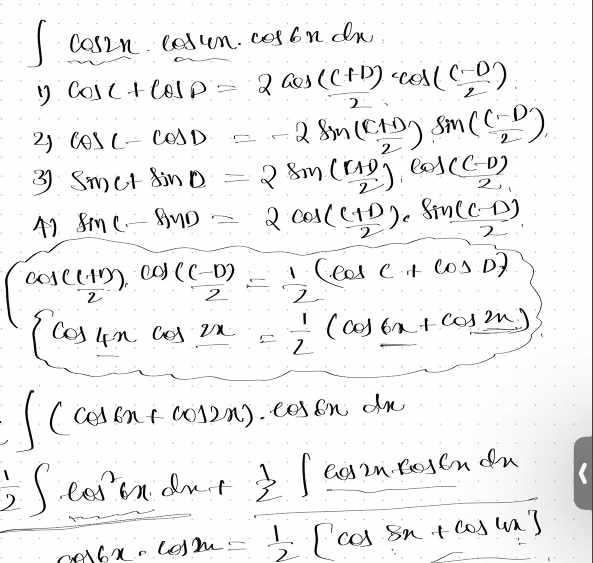 ∫ cos2x · cos4x · cos6x dx
1) cos C + cos D = 2 cos((C+D)/2) · cos((C-D)/2)
2) cos C - cos D = -2 sin((C+D)/2) sin((C-D)/2)
3) sin C + sin D = 2 sin((C+D)/2) · cos((C-D)/2)
4) sin C - sin D = 2 cos((C+D)/2) · sin((C-D)/2)
cos((C+D)/2) · cos((C-D)/2) = 1/2 (cos C + cos D)
{ cos 4x cos 2x = 1/2 (cos 6x + cos 2x)
∫ (cos6x + cos2x) · cos6x dx
1/2 ∫ cos²6x dx + 1/2 ∫ cos2x · cos6x dx
cos6x · cos2x = 1/2 [cos 8x + cos 4x]